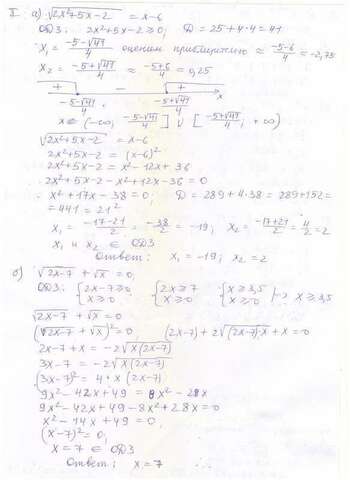 II. а) √(2x²+5x-2) = x-6
ОДЗ: 2x²+5x-2≥0; D = 25+4·4=41
x₁ = (-5-√41)/4 оценим приближенно ≈ (-5-6)/4 ≈ -2,75
x₂ = (-5+√41)/4 ≈ (-5+6)/4 ≈ 0,25
+ - + x
(-5-√41)/4 (-5+√41)/4
x∈ (-∞; (-5-√41)/4] ∪ [(-5+√41)/4; +∞)
√(2x²+5x-2) = x-6
2x²+5x-2 = (x-6)²
2x²+5x-2 = x²-12x+36
2x²+5x-2-x²+12x-36=0
x²+17x-38=0; D=289+4·38=289+152=
=441=21²
x₁ = (-17-21)/2 = -38/2 = -19; x₂ = (-17+21)/2 = 4/2 = 2
x₁ и x₂ ∈ ОДЗ
Ответ: x₁=-19; x₂=2
б) √(2x-7) + √x = 0;
ОДЗ: {2x-7≥0 x≥0; {2x≥7 x≥0; {x≥3,5 x≥0; x≥3,5
√(2x-7) + √x = 0
(√(2x-7) + √x)² = 0; (2x-7)+2√((2x-7)·x)+x=0
2x-7+x = -2√(x(2x-7))
3x-7 = -2√(x(2x-7))
(3x-7)² = 4·x(2x-7)
9x²-42x+49=8x²-28x
9x²-42x+49-8x²+28x=0
x²-14x+49=0
(x-7)²=0;
x=7 ∈ ОДЗ
Ответ: x=7